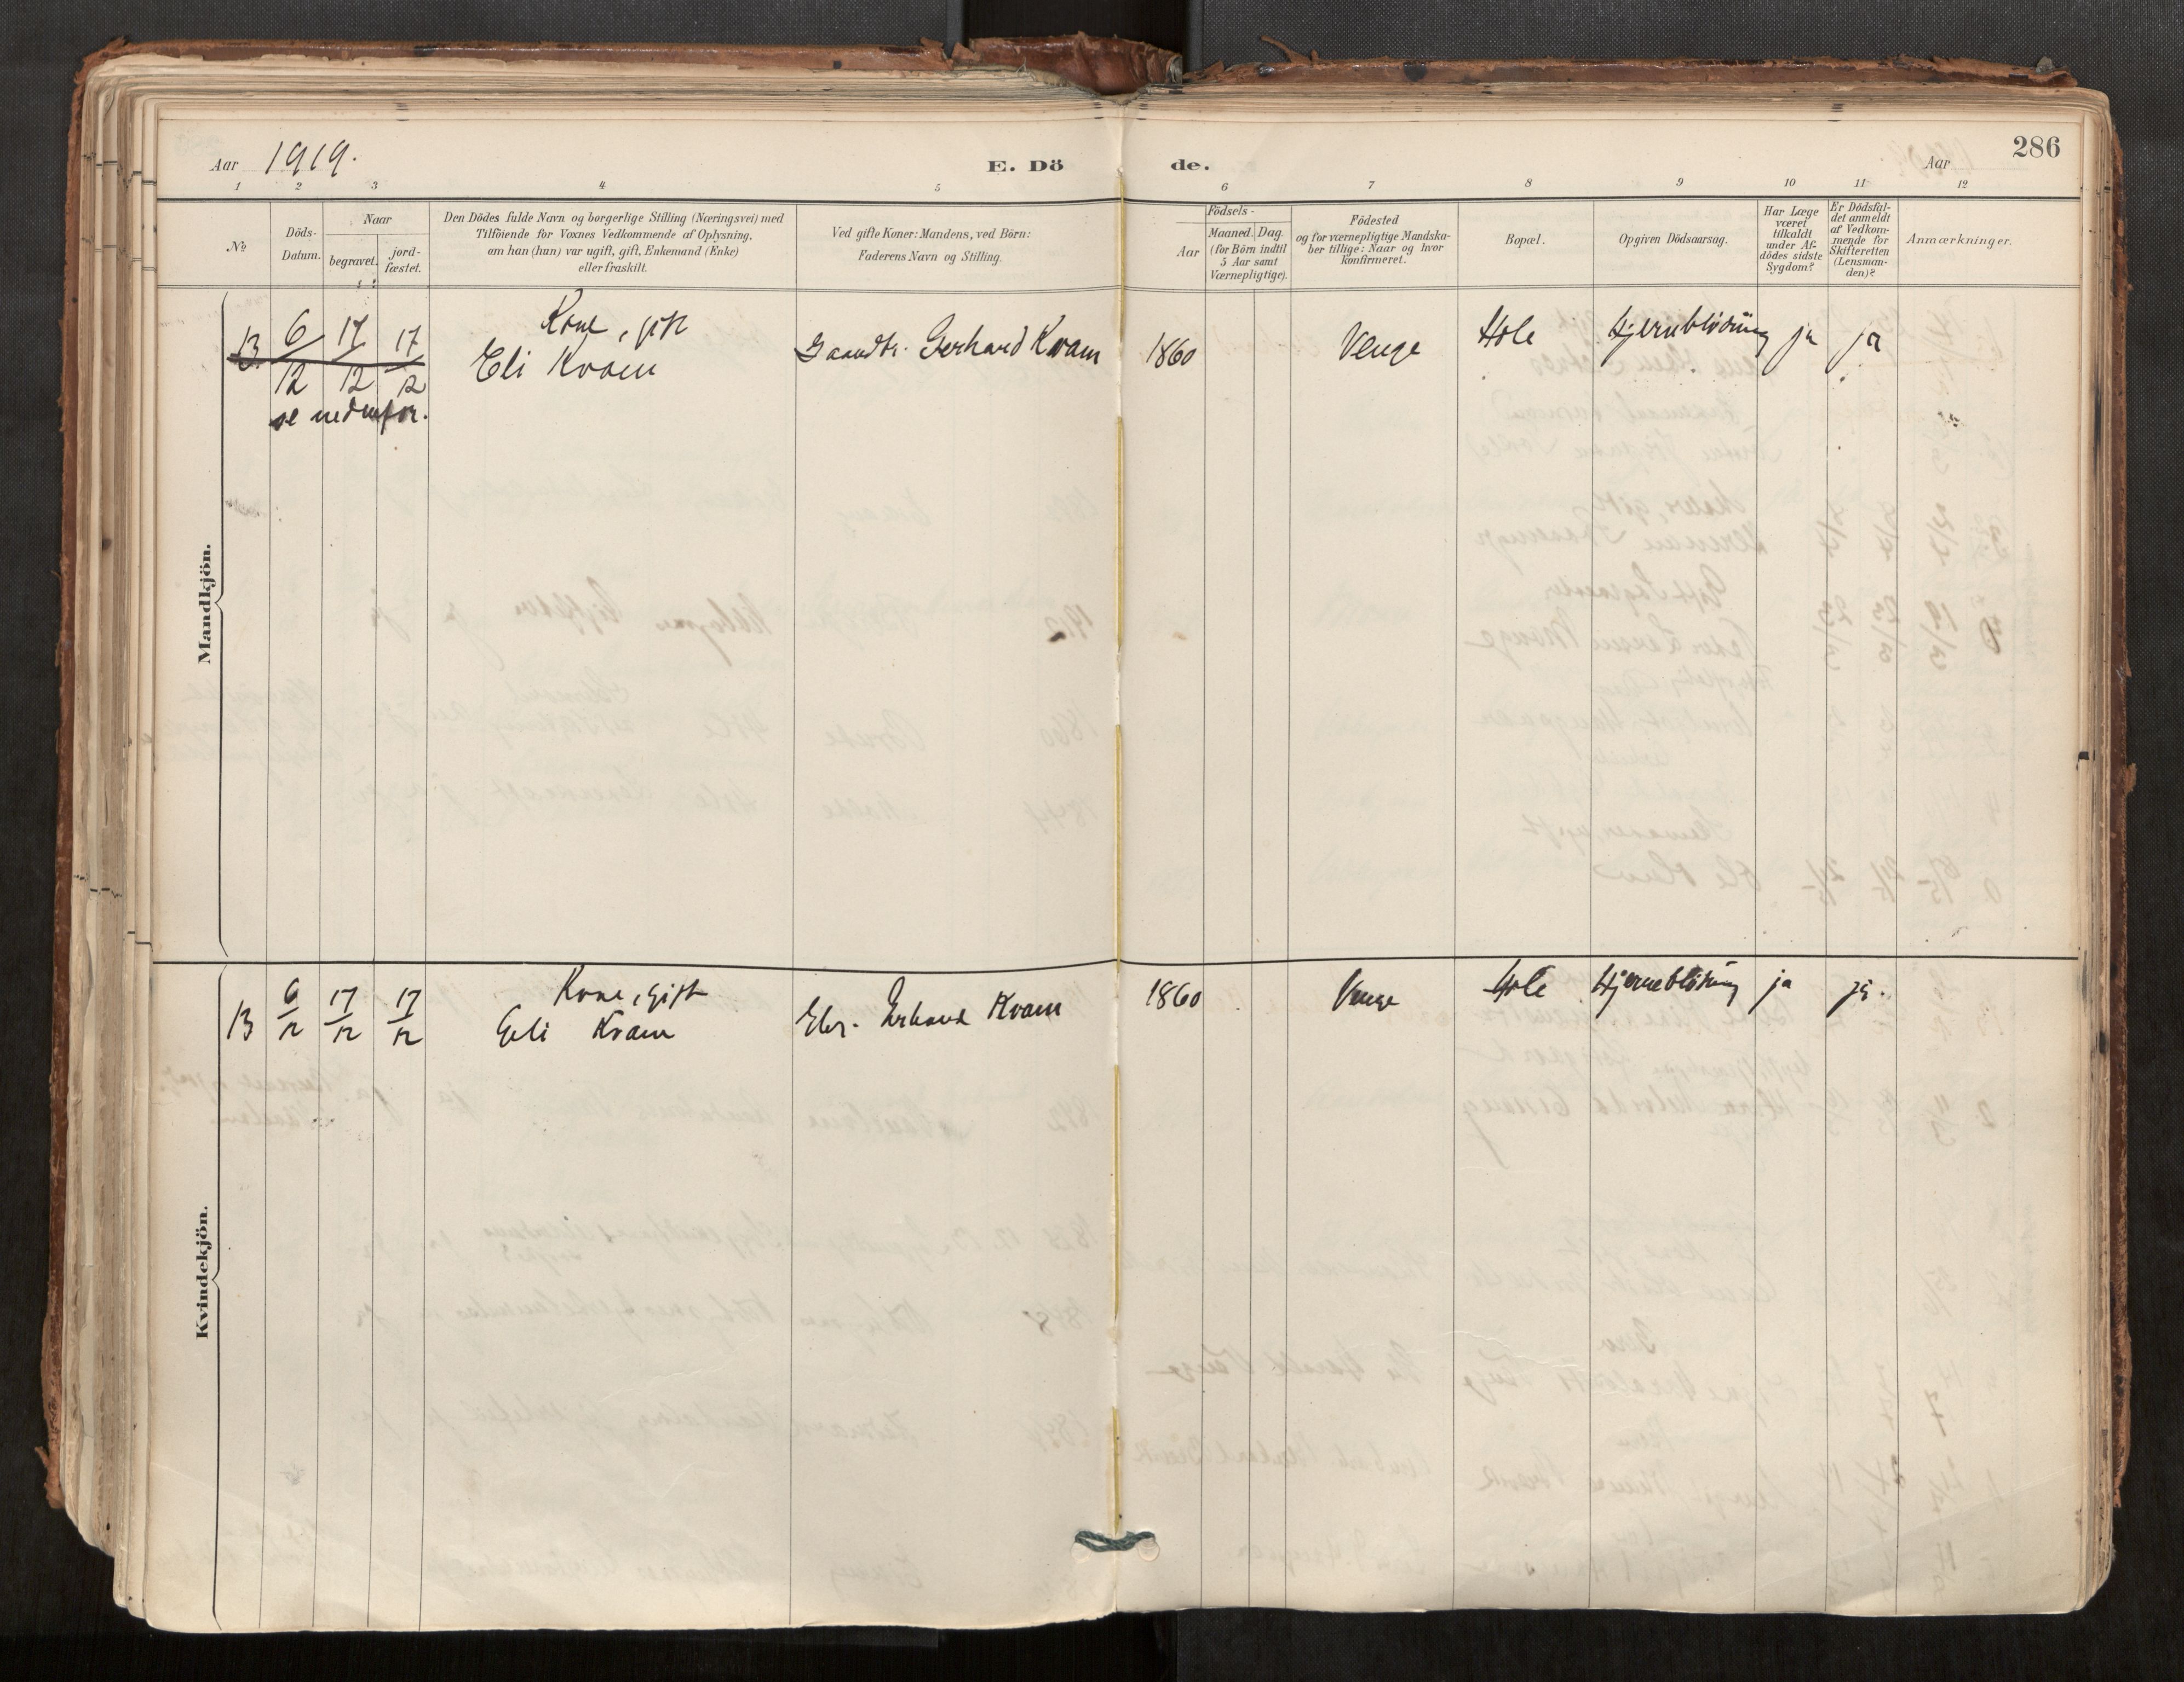 Aar 1919.
E. Dö
de.
Aar
286
1 2 3 4 5 6 7 8 9 10 11 12
No
Döds-
Datum.
Naar
begravet.
jord-
fæstet.
Den Dödes fulde Navn og borgerlige Stilling (Næringsvei) med
Tilföiende for Voxnes Vedkommende af Oplysning,
om han (hun) var ugift, gift, Enkemand (Enke)
eller fraskilt.
Ved gifte Koner: Mandens, ved Börn:
Faderens Navn og Stilling.
Födsels-
Aar
Maaned. Dag.
(for Börn indtil
5 Aar samt
Værnepligtige).
Födested
og for værnepligtige Mandska-
ber tillige: Naar og hvor
konfirmeret.
Bopæl.
Opgiven Dödsaarsag.
Har Læge
været
tilkaldt
under Af-
dödes sidste
Sygdom?
Er Dödsfal-
det anmeldt
af Vedkom-
mende for
Skifteretten
(Lensman-
den)?
Anmærkninger.
Mandkjön.
Kone, gift
13 6/12 17/12 17/12 Eli Kvam Gaardbr. Gerhard Kvam 1860 Venge Hole Hjerneblödning ja ja
se nedenfor.
Kvindekjön.
Kone, gift
13 6/12 17/12 17/12 Eli Kvam Gbr. Gerhard Kvam 1860 Venge Hole Hjerneblödning ja ja.